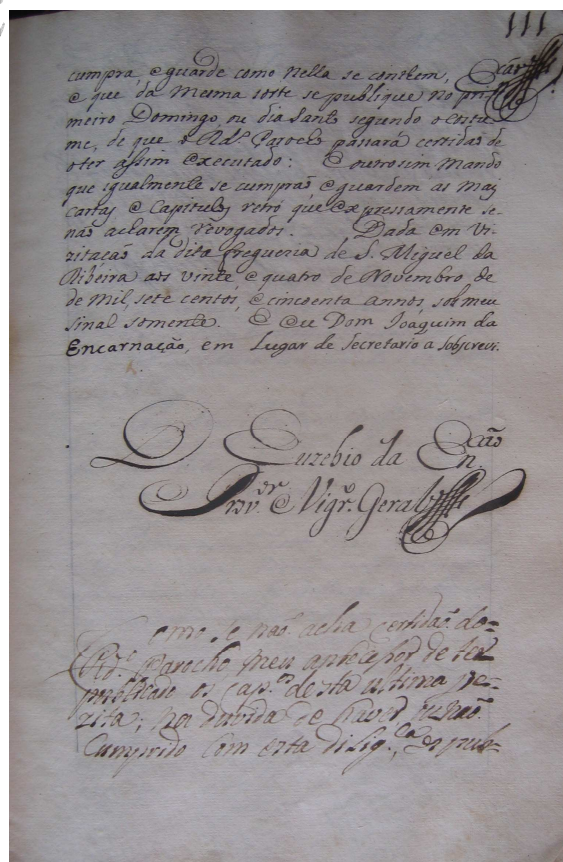 111
Encam
cumpra, e guarde como nella se conthem,
e que da mesma sorte se publique no pri-
meiro Domingo, ou dia Santo segundo o custu-
me, de que o Rd.º Parocho passará certidaõ de
o ter assim executado: E outrosim mando
que igualmente se cumpraõ e guardem as may
cartas e Capitulos retró que expressamente se-
naõ acharem revogados. Dada em vi-
zitaçaõ da dita freguezia de S. Miguel da
Ribeira aos vinte e quatro de Novembro de
de mil, sete centos, e cincoenta annos, sob meu
sinal somente. E eu Dom Joaquim da
Encarnação, em Lugar de Secretario a sobscrevi.
D. Euzebio da En.cão
Prov.or e Vigr.º Geral
Como se naõ acha certidaõ do
Rd.º Parocho meu antecapor de ter
publicado os cap.os desta ultima ve-
zita; na duvida de haver ou naõ
Cumprido com esta dilig.ca, o pub-